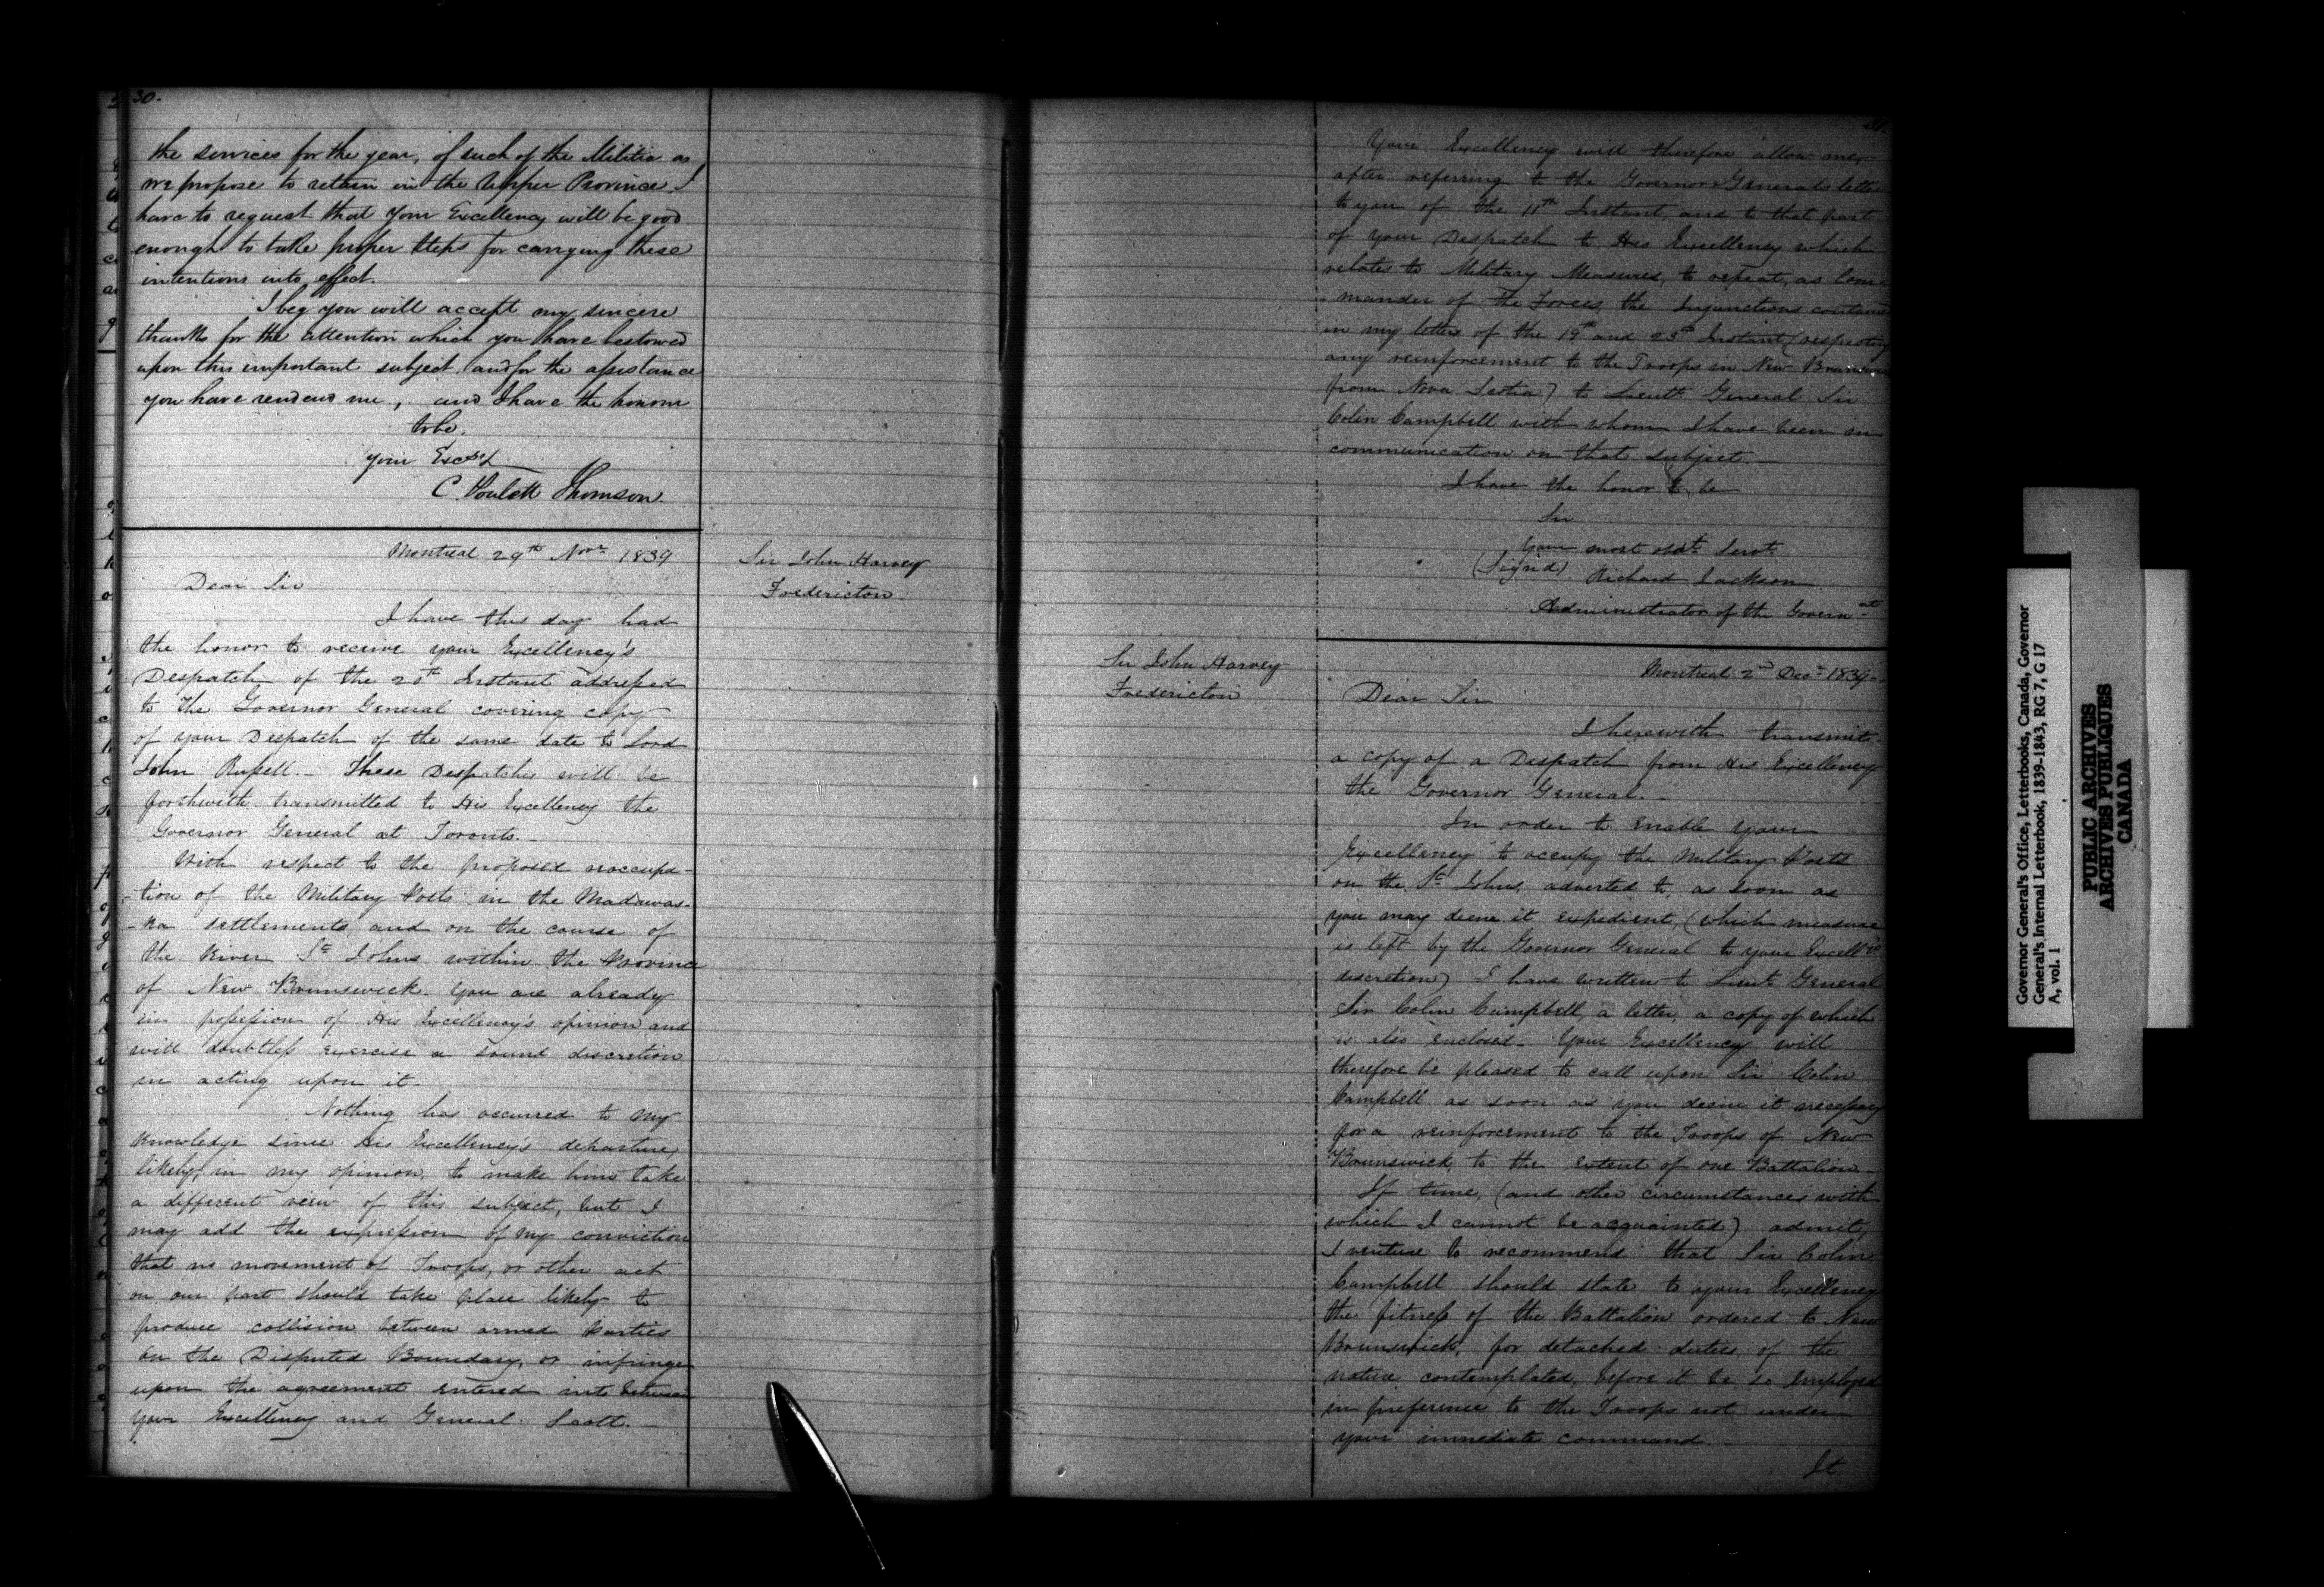 30.
the services for the year, of such of the Militia as
we propose to retain in the Upper Province. I
have to request that your Excellency will be good
enough to take proper steps for carrying these
intentions into effect.
I beg you will accept my sincere
thanks for the attention which you have bestowed
upon this important subject and for the assistance
you have rendered me, and I have the honour
to be.
Your Exc
C. Poulett Thomson.
Montreal 29th Novr 1839
Sir John Harvey
Fredericton
Dear Sir
I have this day had
the honor to receive your Excellency's
Despatch of the 20th Instant addressed
to The Governor General covering copy
of your Despatch of the same date to Lord
John Russell. - These Despatches will be
forthwith transmitted to His Excellency the
Governor General at Toronto. -
With respect to the proposed reoccupa-
-tion of the Military Posts in the Madawas-
-ka settlements, and on the course of
the River St Johns within the Province
of New Brunswick. You are already
in possession of His Excellency's opinion and
will doubtless exercise a sound discretion
in acting upon it.
Nothing has occurred to my
knowledge since His Excellency's departure,
likely, in my opinion, to make him take
a different view of this subject, but I
may add the expression of my conviction
that no movement of Troops, or other act
on our part should take place likely to
produce collision between armed parties
on the Disputed Boundary, or infringe
upon the agreement entered into between
your Excellency and General Scott. -
31.
Your Excellency will therefore allow me,
after referring to the Governor General's letter
to you of the 11th Instant, and to that part
of your Despatch to His Excellency which
relates to Military Measures, to repeat, as Com-
-mander of the Forces, the Injunctions contained
in my letters of the 19th and 23d Instant (respecting
any reinforcement to the Troops in New Brunswick
from Nova Scotia) to Lieutt General Sir
Colin Campbell with whom I have been in
communication on that subject. -
I have the honor to be
Sir
Your most obdt Servt
(Signed) Richard Jackson
Administrator of the Govern-nt
Sir John Harvey
Fredericton
Montreal 2nd Decr 1839 -
Dear Sir
I herewith transmit
a copy of a Despatch from His Excellency
the Governor General. -
In order to enable Your
Excellency to occupy the Military Posts
on the St Johns, adverted to, as soon as
you may deem it expedient, (which measure
is left by the Governor General to your Excell's
discretion) I have written to Lieut General
Sir Colin Campbell, a letter, a copy of which
is also enclosed - Your Excellency will
therefore be pleased to call upon Sir Colin
Campbell as soon as you deem it necessary
for a reinforcement to the Troops of New
Brunswick, to the extent of one Battalion -
If time, (and other circumstances with
which I cannot be acquainted) admit,
I venture to recommend that Sir Colin
Campbell should state to your Excellency
the fitness of the Battalion ordered to New
Brunswick, for detached duties of the
nature contemplated, before it be so employed
in preference to the Troops not under
your immediate command. -
It
Governor General's Office, Letterbooks, Canada, Governor
General's Internal Letterbook, 1839-1843, RG 7, G 17
A, vol. 1
PUBLIC ARCHIVES
ARCHIVES PUBLIQUES
CANADA